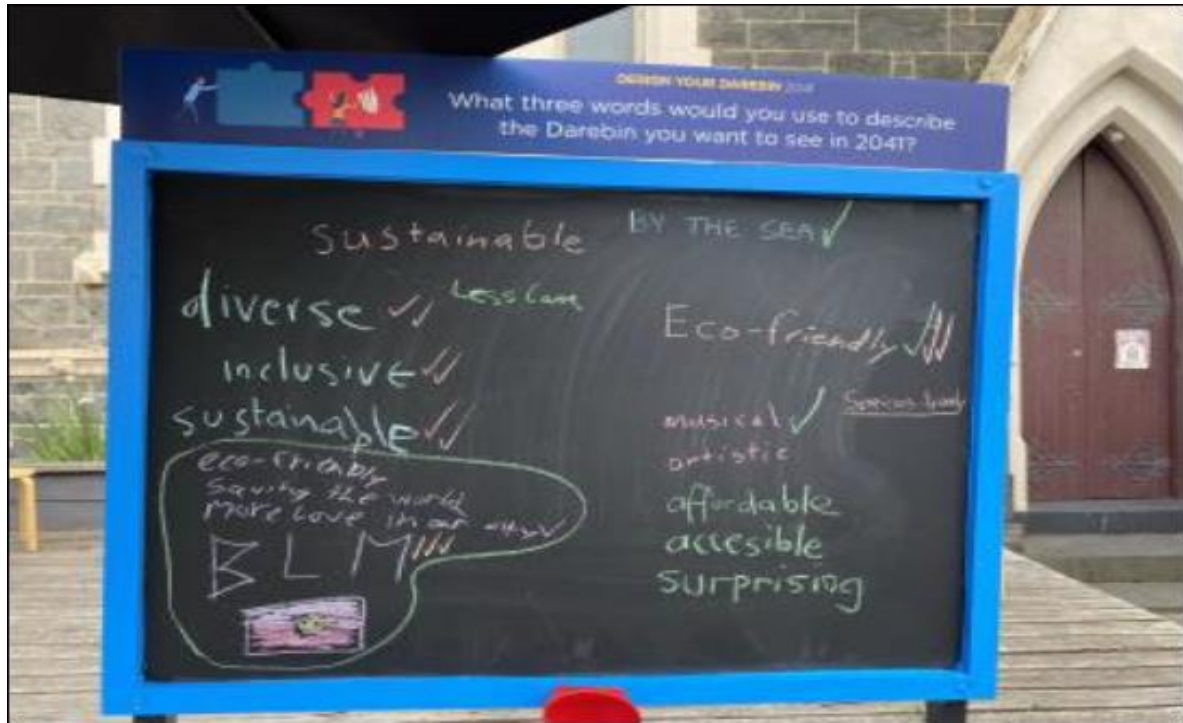 DESIGN YOUR DAREBIN 2041
What three words would you use to describe
the Darebin you want to see in 2041?
sustainable
BY THE SEA ✓
diverse ✓✓
Less
inclusive ✓✓
sustainable ✓✓
eco-friendly
Saving the world
more love in our ✓
BLM ✓✓✓
Eco-friendly ✓✓✓
musical ✓
artistic
affordable
accesible
surprising